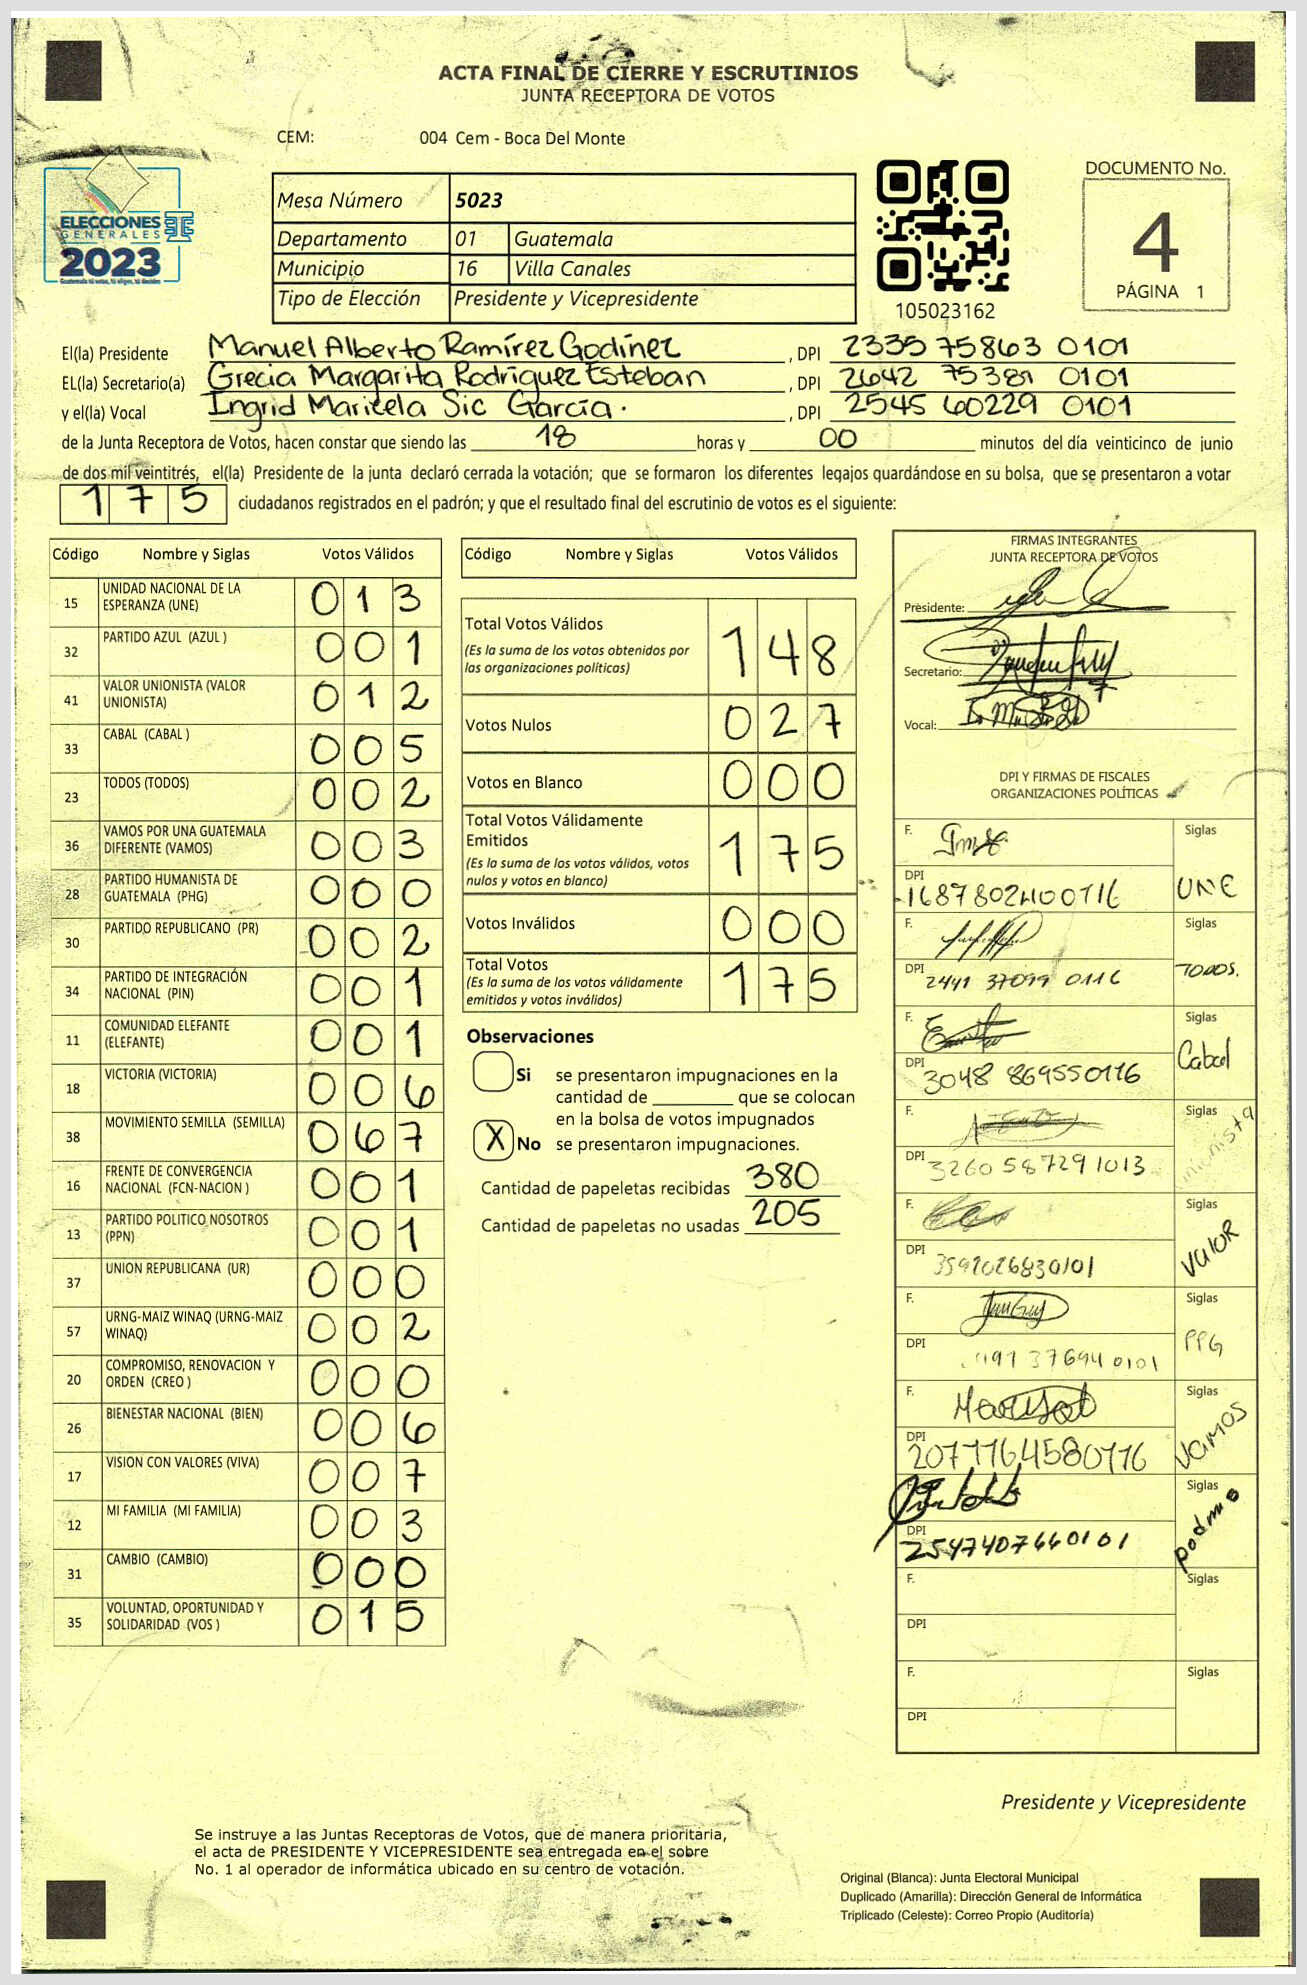 ACTA FINAL DE CIERRE Y ESCRUTINIOS
JUNTA RECEPTORA DE VOTOS
CEM: 004 Cem - Boca Del Monte
ELECCIONES
GENERALES
2023
Mesa Número 5023
Departamento 01 Guatemala
Municipio 16 Villa Canales
Tipo de Elección Presidente y Vicepresidente
105023162
DOCUMENTO No.
4
PÁGINA 1
El(la) Presidente Manuel Alberto Ramírez Godínez, DPI 2335 75863 0101
EL(la) Secretario(a) Grecia Margarita Rodríguez Esteban, DPI 2642 75381 0101
y el(la) Vocal Ingrid Maricela Sic García., DPI 2545 60229 0101
de la Junta Receptora de Votos, hacen constar que siendo las 18 horas y 00 minutos del día veinticinco de junio
de dos mil veintitrés, el(la) Presidente de la junta declaró cerrada la votación; que se formaron los diferentes legajos guardándose en su bolsa, que se presentaron a votar
175 ciudadanos registrados en el padrón; y que el resultado final del escrutinio de votos es el siguiente:
Código Nombre y Siglas Votos Válidos
15 UNIDAD NACIONAL DE LA ESPERANZA (UNE) 013
32 PARTIDO AZUL (AZUL ) 001
41 VALOR UNIONISTA (VALOR UNIONISTA) 012
33 CABAL (CABAL ) 005
23 TODOS (TODOS) 002
36 VAMOS POR UNA GUATEMALA DIFERENTE (VAMOS) 003
28 PARTIDO HUMANISTA DE GUATEMALA (PHG) 000
30 PARTIDO REPUBLICANO (PR) 002
34 PARTIDO DE INTEGRACIÓN NACIONAL (PIN) 001
11 COMUNIDAD ELEFANTE (ELEFANTE) 001
18 VICTORIA (VICTORIA) 006
38 MOVIMIENTO SEMILLA (SEMILLA) 067
16 FRENTE DE CONVERGENCIA NACIONAL (FCN-NACION ) 001
13 PARTIDO POLITICO NOSOTROS (PPN) 001
37 UNION REPUBLICANA (UR) 000
57 URNG-MAIZ WINAQ (URNG-MAIZ WINAQ) 002
20 COMPROMISO, RENOVACION Y ORDEN (CREO ) 000
26 BIENESTAR NACIONAL (BIEN) 006
17 VISION CON VALORES (VIVA) 007
12 MI FAMILIA (MI FAMILIA) 003
31 CAMBIO (CAMBIO) 000
35 VOLUNTAD, OPORTUNIDAD Y SOLIDARIDAD (VOS ) 015
Código Nombre y Siglas Votos Válidos
Total Votos Válidos 148
(Es la suma de los votos obtenidos por
las organizaciones políticas)
Votos Nulos 027
Votos en Blanco 000
Total Votos Válidamente
Emitidos 175
(Es la suma de los votos válidos, votos
nulos y votos en blanco)
Votos Inválidos 000
Total Votos 175
(Es la suma de los votos válidamente
emitidos y votos inválidos)
Observaciones
Si se presentaron impugnaciones en la
cantidad de ________ que se colocan
en la bolsa de votos impugnados
X No se presentaron impugnaciones.
Cantidad de papeletas recibidas 380
Cantidad de papeletas no usadas 205
FIRMAS INTEGRANTES
JUNTA RECEPTORA DE VOTOS
Presidente:
Secretario:
Vocal:
DPI Y FIRMAS DE FISCALES
ORGANIZACIONES POLÍTICAS
F. Siglas
DPI 1687802400116 UNE
F. Siglas
DPI 2441 37099 0116 TODOS.
F. Siglas
DPI 3048 869550116 Cabal
F. Siglas
DPI 3260 587291013 unionista
F. Siglas
DPI 3592026830101 VALOR
F. Siglas
DPI 37694 0101 PPG
F. Marisol Siglas
DPI 2077764580116 VAMOS
F. Siglas
DPI 2547407660101 podmos
F. Siglas
DPI
F. Siglas
DPI
Presidente y Vicepresidente
Se instruye a las Juntas Receptoras de Votos, que de manera prioritaria,
el acta de PRESIDENTE Y VICEPRESIDENTE sea entregada en el sobre
No. 1 al operador de informática ubicado en su centro de votación.
Original (Blanca): Junta Electoral Municipal
Duplicado (Amarilla): Dirección General de Informática
Triplicado (Celeste): Correo Propio (Auditoría)